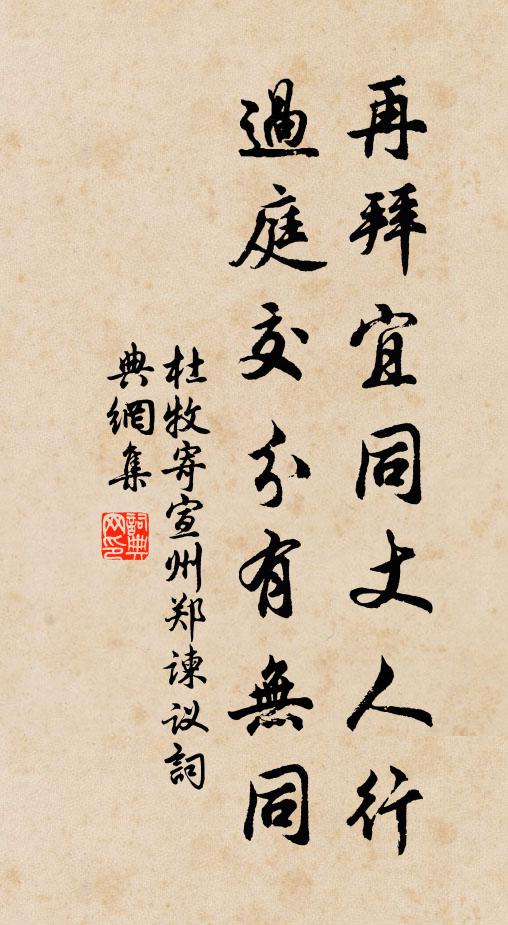 再拜宜同丈人行
過庭交分有無同
杜牧寄宣州郑谏议詞
典網集
詞典网印